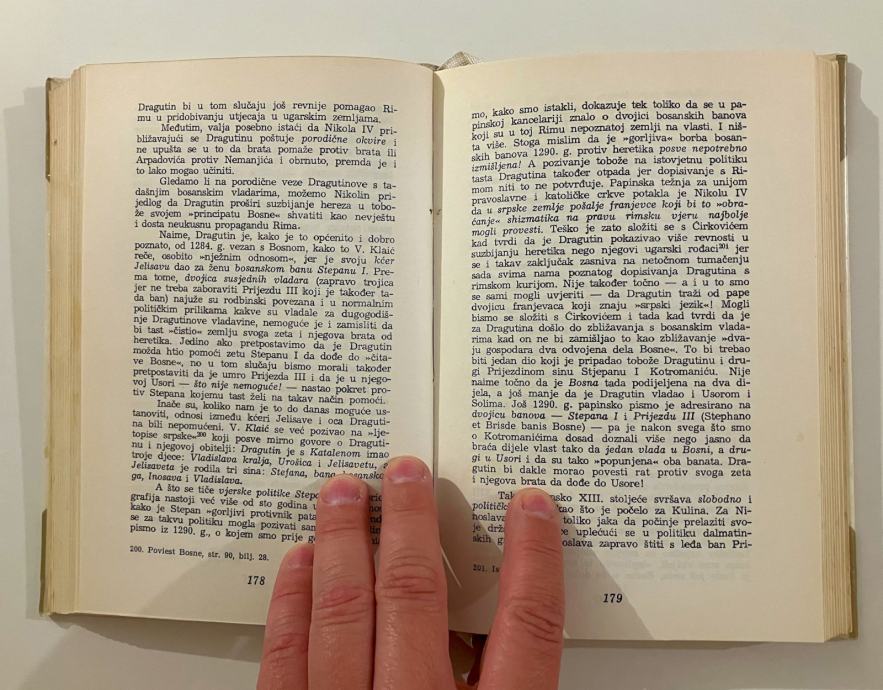 Dragutin bi u tom slučaju još revnije pomagao Ri-
mu u pridobivanju utjecaja u ugarskim zemljama.
Međutim, valja posebno istaći da Nikola IV pri-
bližavajući se Dragutinu poštuje porodične okvire i
ne upušta se u to da brata pomaže protiv brata ili
Arpadovića protiv Nemanjića i obrnuto, premda je i
to lako mogao učiniti.
Gledamo li na porodične veze Dragutinove s ta-
dašnjim bosanskim vladarima, možemo Nikolin pri-
jedlog da Dragutin proširi suzbijanje hereza u tobo-
že svojem »principatu Bosne« shvatiti kao nevještu
i dosta neukusnu propagandu Rima.
Naime, Dragutin je, kako je to općenito i dobro
poznato, od 1284. g. vezan s Bosnom, kako to V. Klaić
reče, osobito »nježnim odnosom«, jer je svoju kćer
Jelisavu dao za ženu bosanskom banu Stepanu I. Pre-
ma tome, dvojica susjednih vladara (zapravo trojica
jer ne treba zaboraviti Prijezdu III koji je također ta-
da ban) najuže su rodbinski povezana i u normalnim
političkim prilikama kakve su vladale za dugogodiš-
nje Dragutinove vladavine, nemoguće je i zamisliti da
bi tast »čistio« zemlju svoga zeta i njegova brata od
heretika. Jedino ako pretpostavimo da je Dragutin
možda htio pomoći zetu Stepanu I da dođe do »čita-
ve Bosne«, no u tom slučaju bismo morali također
pretpostaviti da je umro Prijezda III i da je u njego-
voj Usori — što nije nemoguće! — nastao pokret pro-
tiv Stepana kojemu tast želi na takav način pomoći.
Inače su, koliko nam je to do danas moguće us-
tanoviti, odnosi između kćeri Jelisave i oca Draguti-
na bili nepomućeni. V. Klaić se već pozivao na »lje-
topise srpske«²⁰⁰ koji posve mirno govore o Draguti-
nu i njegovoj obitelji: Dragutin je s Katalenom imao
troje djece: Vladislava kralja, Urošica i Jelisavetu, a
Jelisaveta je rodila tri sina: Stefana, bana bosansko-
ga, Inosava i Vladislava.
A što se tiče vjerske politike
grafija nastoji već više od sto godina
kako je Stepan »gorljivi protivnik
se za takvu politiku mogla pozivati
pismo iz 1290. g., o kojem smo prije
200. Poviest Bosne, str. 90, bilj. 28.
178
mo, kako smo istakli, dokazuje tek toliko da se u pa-
pinskoj kancelariji znalo o dvojici bosanskih banova
koji su u toj Rimu nepoznatoj zemlji na vlasti. I niš-
ta više. Stoga mislim da je »gorljiva« borba bosan-
skih banova 1290. g. protiv heretika posve nepotrebno
izmišljena! A pozivanje tobože na istovjetnu politiku
tasta Dragutina također otpada jer dopisivanje s Ri-
mom niti to ne potvrđuje. Papinska težnja za unijom
pravoslavne i katoličke crkve potakla je Nikolu IV
da u srpske zemlje pošalje franjevce koji bi to »obra-
ćanje« shizmatika na pravu rimsku vjeru najbolje
mogli provesti. Teško je zato složiti se s Ćirkovićem
kad tvrdi da je Dragutin pokazivao više revnosti u
suzbijanju heretika nego njegovi ugarski rođaci²⁰¹ jer
se i takav zaključak zasniva na netočnom tumačenju
sada svima nama poznatog dopisivanja Dragutina s
rimskom kurijom. Nije također točno — a i u to smo
se sami mogli uvjeriti — da Dragutin traži od pape
dvojicu franjevaca koji znaju »srpski jezik«! Mogli
bismo se složiti s Ćirkovićem i tada kad tvrdi da je
za Dragutina došlo do zbližavanja s bosanskim vlada-
rima kad on ne bi zamišljao to kao zbližavanje »dva-
ju gospodara dva odvojena dela Bosne«. To bi trebao
biti jedan dio koji je pripadao tobože Dragutinu i dru-
gi Prijezdinom sinu Stjepanu I Kotromaniću. Nije
naime točno da je Bosna tada podijeljena na dva di-
jela, a još manje da je Dragutin vladao i Usorom i
Solima. Još 1290. g. papinsko pismo je adresirano na
dvojicu banova — Stepana I i Prijezdu III (Stephano
et Brisde banis Bosne) — pa je nakon svega što smo
o Kotromanićima dosad doznali više nego jasno da
braća dijele vlast tako da jedan vlada u Bosni, a dru-
gi u Usori i da su tako »popunjena« oba banata. Dra-
gutin bi dakle morao povesti rat protiv svoga zeta
i njegova brata da dođe do Usore!
XIII. stoljeće svršava slobodno i
kao što je počelo za Kulina. Za Ni-
toliko jaka da počinje prelaziti svo-
uplećući se u politiku dalmatin-
zapravo štiti s leđa ban Pri-
201.
179